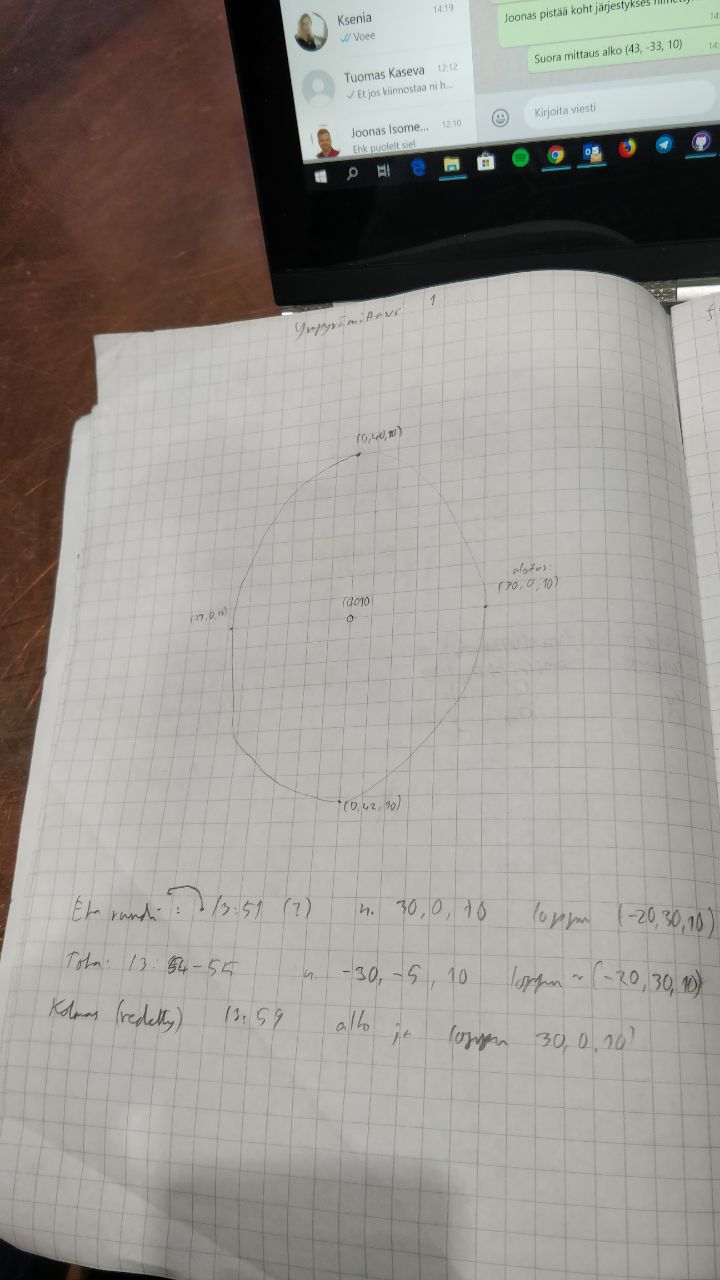 Ksenia 14:19
Voee
Tuomas Kaseva 12:12
Et jos kiinnostaa ni h...
Joonas Isome... 12:10
Ehk puolelt siel
Joonas pistää koht järjestykses
Suora mittaus alko (43, -33, 10)
Kirjoita viesti
Ympyrämittaus 1
(0,40,10)
aloitus:
(30,0,10)
(0,42,10)
13:51 (?) n. 30,0,10 loppu (-20,30,10)
Toka: 13:54-55 n. -30,-5,10 loppu ~(-20,30,10)
Kolmas (vedetty) 13:59 alko ja loppu 30,0,10